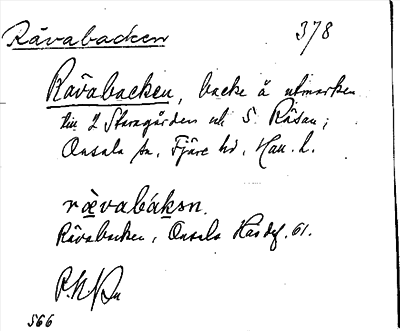 Rävabacken 378
Rävabacken, backe å utmarken
till 2 Storegården och 5 Råsan;
Onsala sn, Fjäre hd, Hall. l.
rævabákən.
Rävabacken, Onsala Hasdef. 61.
566